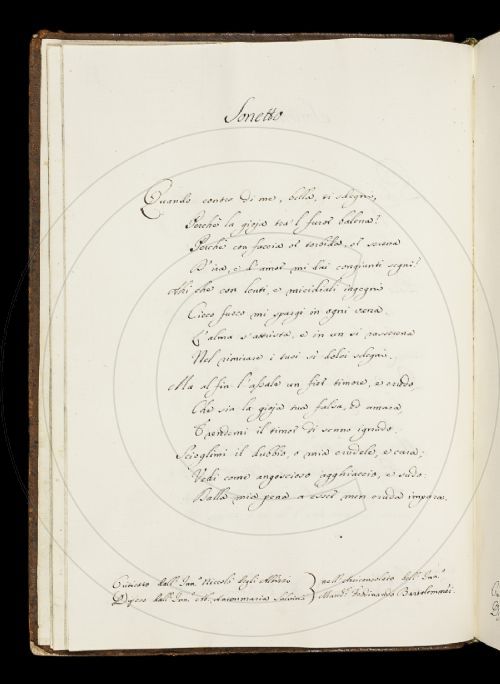 Sonetto
Quando contro di me, bella, ti sdegni,
Perchè la gioja tra l furor balena?
Perchè con faccia or torbida, or serena
D'ira, e d'amor mi dai congiunti segni?
Ahi che con lenti, e micidiali ingegni
Cieco fuoco mi spargi in ogni vena.
E l'alma s'attrista, e in un si rasserena
Nel rimirare i tuoi sì dolci sdegni.
Ma al fin l'assale un fier timore, e crudo
Che sia la gioja tua falsa, ed amara,
E rendemi il timor di senno ignudo.
Scioglimi il dubbio, o mia crudele, e cara;
Vedi come angoscioso agghiaccio, e sudo:
Dalla mia pena a esser men cruda impara.
Criticato dall' Inn.º Niccolò degli Albizzi nell' Arciconsolato dell' Inn.º
Difeso dall' Inn.º Ab. Antonmaria Salvini Ferdinando Bartolommei.